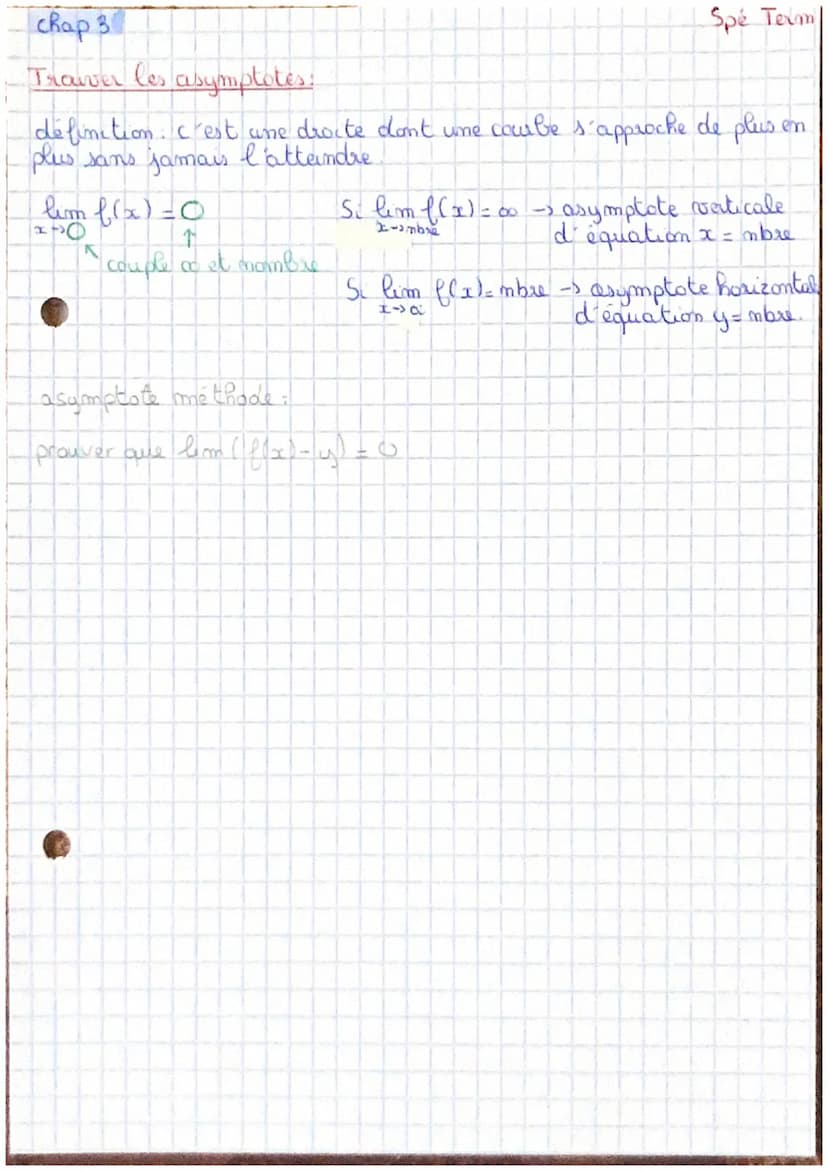 Chap 3
Spé Term
Trouver les asymptotes:
définition: c'est une droite dont une courbe s'approche de plus en
plus sans jamais l'atteindre.
lim f(x) = O
x→O
↑
couple ∞ et nombre
Si lim f(x) = ∞ → asymptote verticale
x→nbre
d'équation x = nbre
Si lim f(x) = nbre → asymptote horizontal
x→∞
d'équation y = nbre.
asymptote méthode:
prouver que lim (f(x) - y) = 0